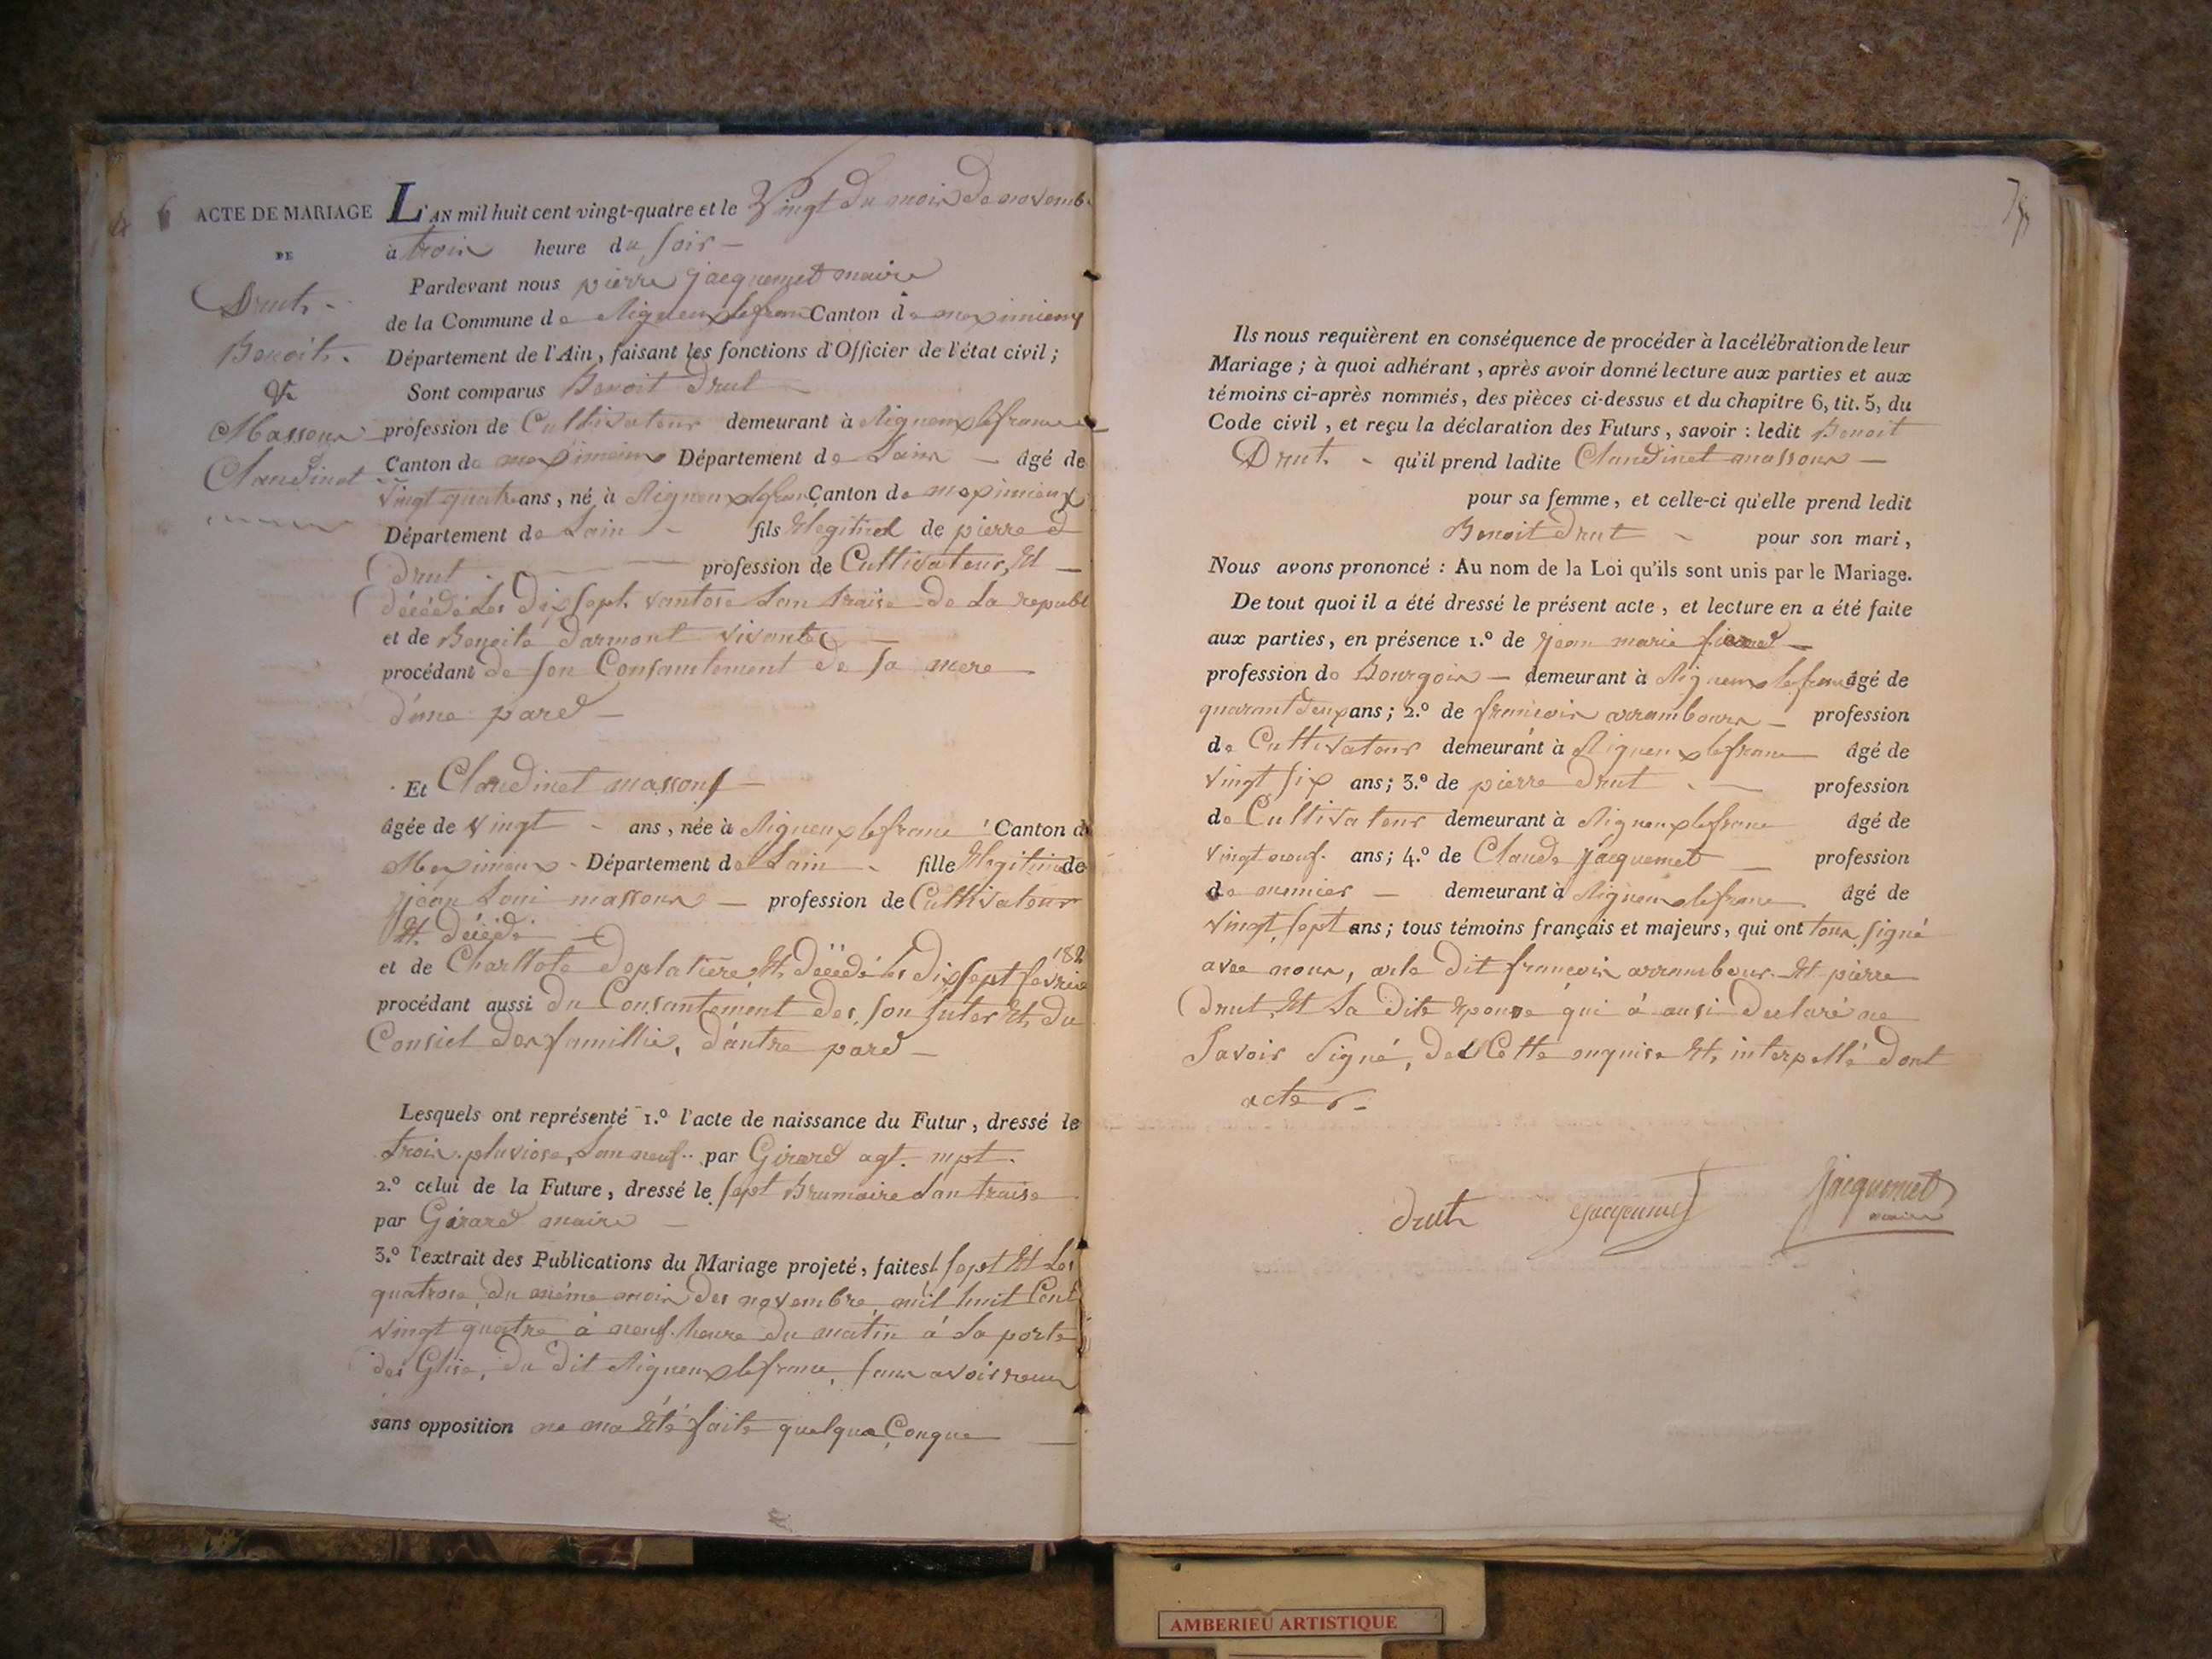 6 ACTE DE MARIAGE
DE
Drut
Benoit
&
Massons
Claudinet
L'AN mil huit cent vingt-quatre et le Vingt du mois de novemb.
à trois heure du soir
Pardevant nous pierre jacquemet maire
de la Commune de Rigneux lefranc Canton de meximieux
Département de l'Ain, faisant les fonctions d'Officier de l'état civil;
Sont comparus Benoit Drut
profession de Cultivateur demeurant à Rigneux lefranc
Canton de meximieux Département de Lain âgé de
vingt quatre ans, né à Rigneux lefranc Canton de meximieux
Département de Lain fils légitime de pierre
Drut profession de Cultivateur, Et
décédé les dix sept vantose Lan traise de la republ
et de Benoite darmont vivante
procédant de son Consantement de sa mere
d'une pard
Et Claudinet massons
âgée de vingt ans, née à Rigneux lefranc Canton de
Meximieux Département de Lain fille légitime de
jean Loui massons profession de Cultivateur
Et décédé
et de Charllote deplatière Et décédé les dix sept fevrier 182
procédant aussi du Consantement des son tuter Et du
Consiel des famillie, d'autre pard
Lesquels ont représenté 1.º l'acte de naissance du Futur, dressé le
trois pluviose, Lan neuf par Girard agt. mpt.
2.º celui de la Future, dressé le sept Brumaire Lan traise
par Girard maire
3.º l'extrait des Publications du Mariage projeté, faites l sept Et Les
quatrose du même mois des novembre mil huit Cent
vingt quatre à neuf heure du matin à La porte
des Glise, du dit Rigneux lefranc, sans avoir
sans opposition ne ma Eté faite quelque Conque
Ils nous requièrent en conséquence de procéder à la célébration de leur
Mariage; à quoi adhérant, après avoir donné lecture aux parties et aux
témoins ci-après nommés, des pièces ci-dessus et du chapitre 6, tit. 5, du
Code civil, et reçu la déclaration des Futurs, savoir: ledit Benoit
Drut qu'il prend ladite Claudinet massons
pour sa femme, et celle-ci qu'elle prend ledit
Benoit Drut pour son mari,
Nous avons prononcé: Au nom de la Loi qu'ils sont unis par le Mariage.
De tout quoi il a été dressé le présent acte, et lecture en a été faite
aux parties, en présence 1.º de jean marie
profession de Bourgois demeurant à Rigneux lefranc âgé de
quarant deux ans; 2.º de francois arrambours profession
de Cultivateur demeurant à Rigneux lefranc âgé de
vingt six ans; 3.º de pierre Drut profession
de Cultivateur demeurant à Rigneux lefranc âgé de
vingt neuf ans; 4.º de Claude jacquemet profession
de munier demeurant à Rigneux lefranc âgé de
vingt sept ans; tous témoins français et majeurs, qui ont tous signé
avec nous, dit françois arrambour Et pierre
Drut, Et La dite Epouse qui à ausi declaré ne
Savoir Signé, de Cette enquise Et, interpellé dont
acte
drut jacquemet jacquemet
maire
AMBERIEU ARTISTIQUE